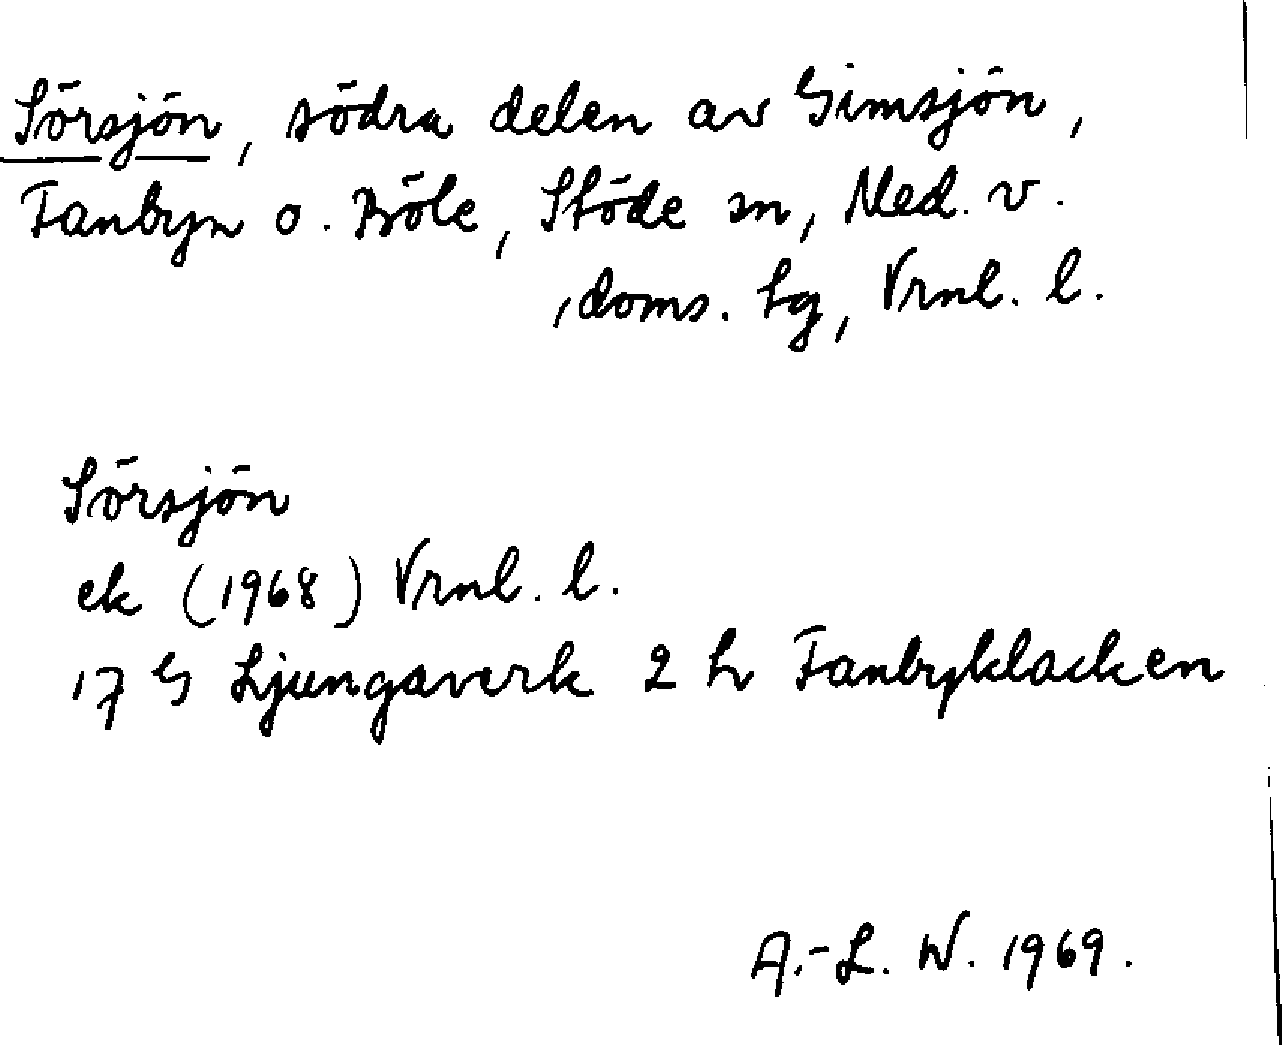 Sörsjön, södra delen av Gimsjön,
Fanbyn o. Böle, Stöde sn, Med. v.
,doms. hg, Vrnl. l.
Sörsjön
ek (1968) Vrnl. l.
17 G Ljungaverk 2 h Fanbyklacken
A.-L. W. 1969.